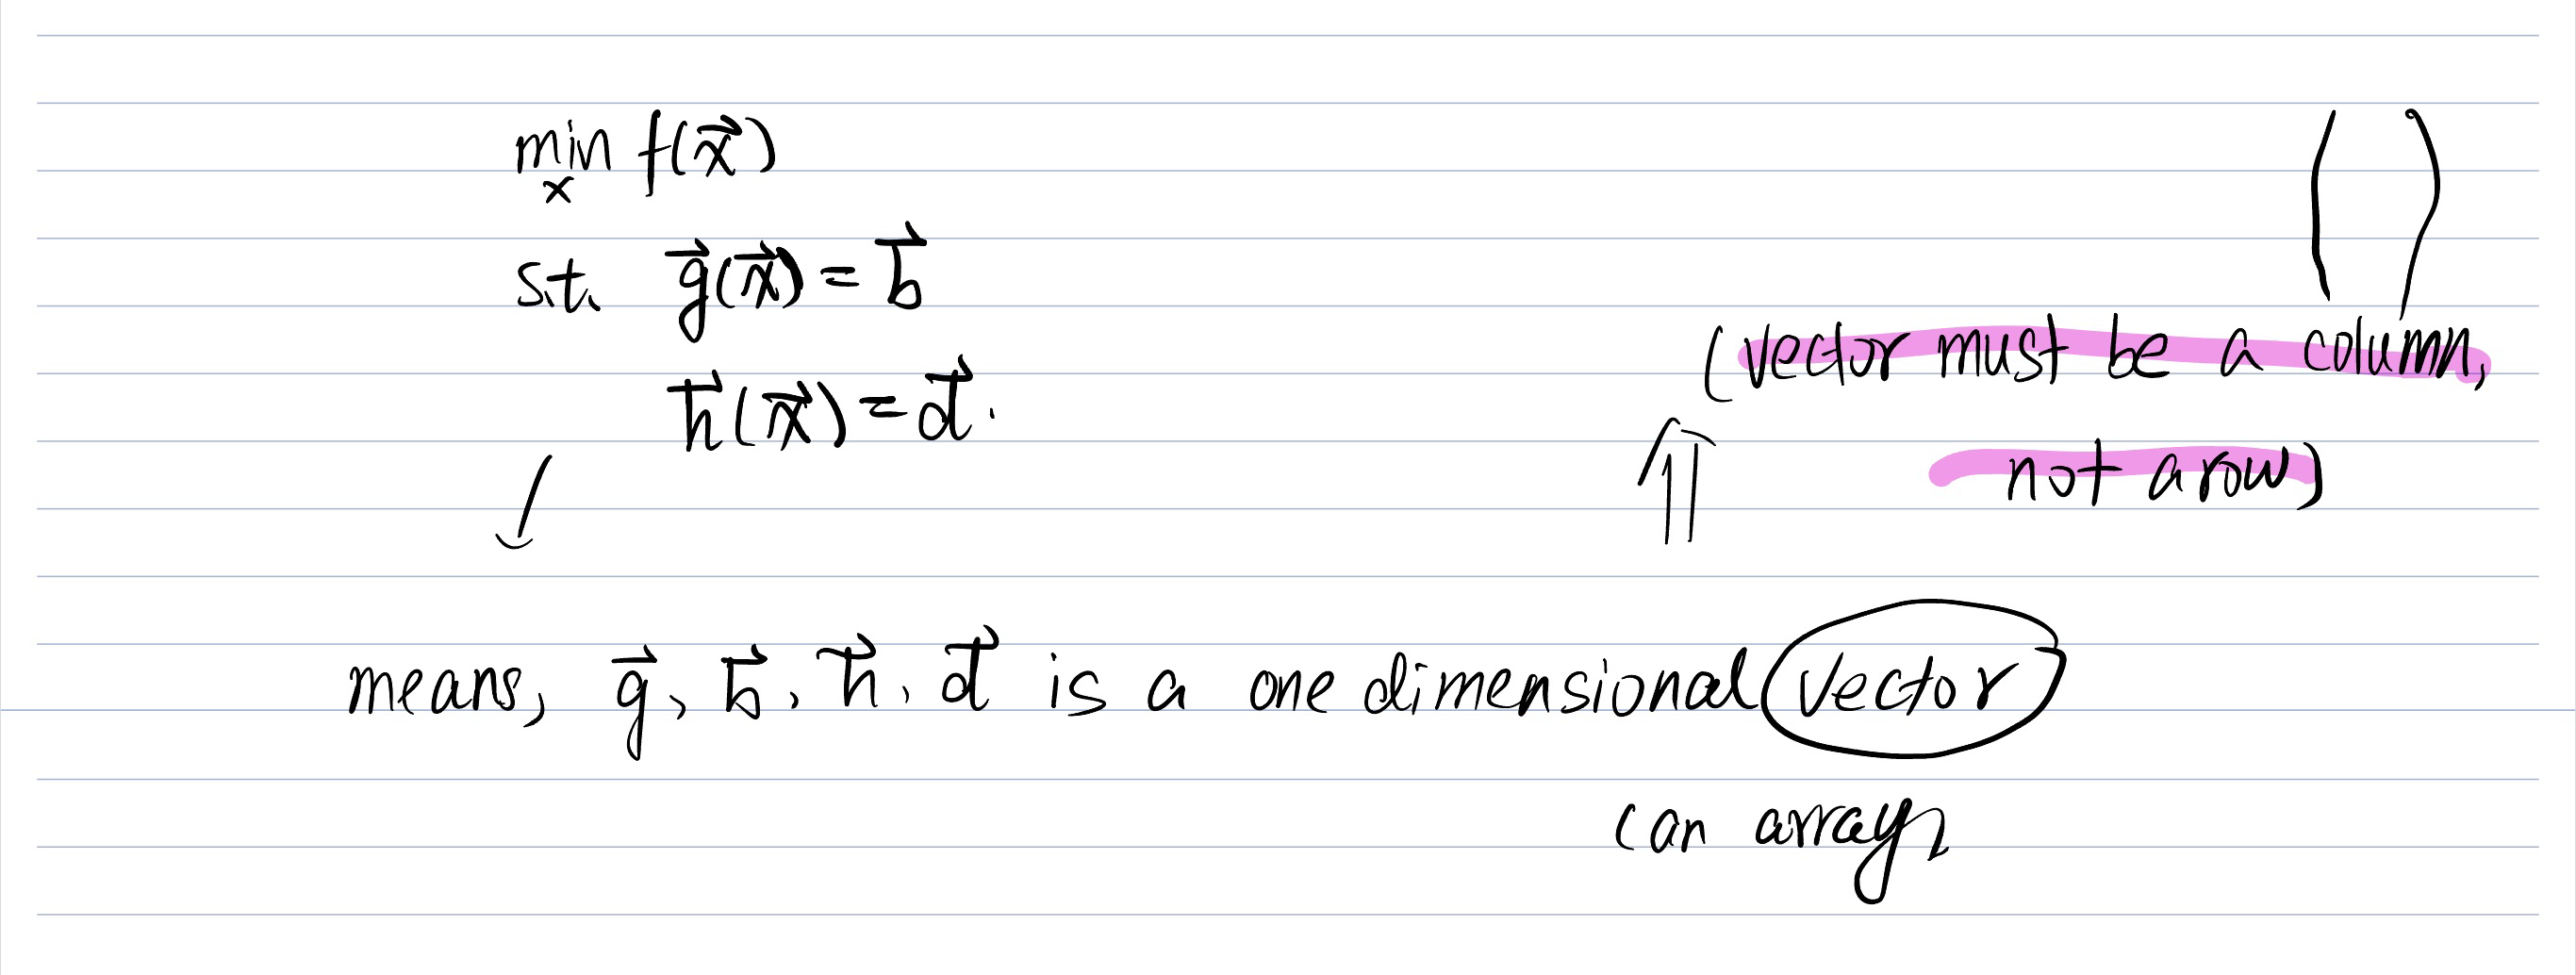 min f(x⃗)
x
s.t. g⃗(x⃗) = b⃗
h⃗(x⃗) = d⃗.
(vector must be a column,
not a row)
means, g⃗, b⃗, h⃗, d⃗ is a one dimensional vector
(an array)